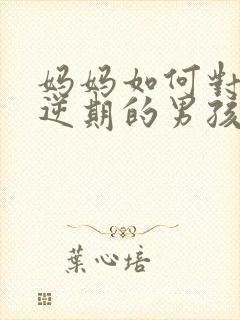 妈妈如何對
逆期的男孩
葉心培